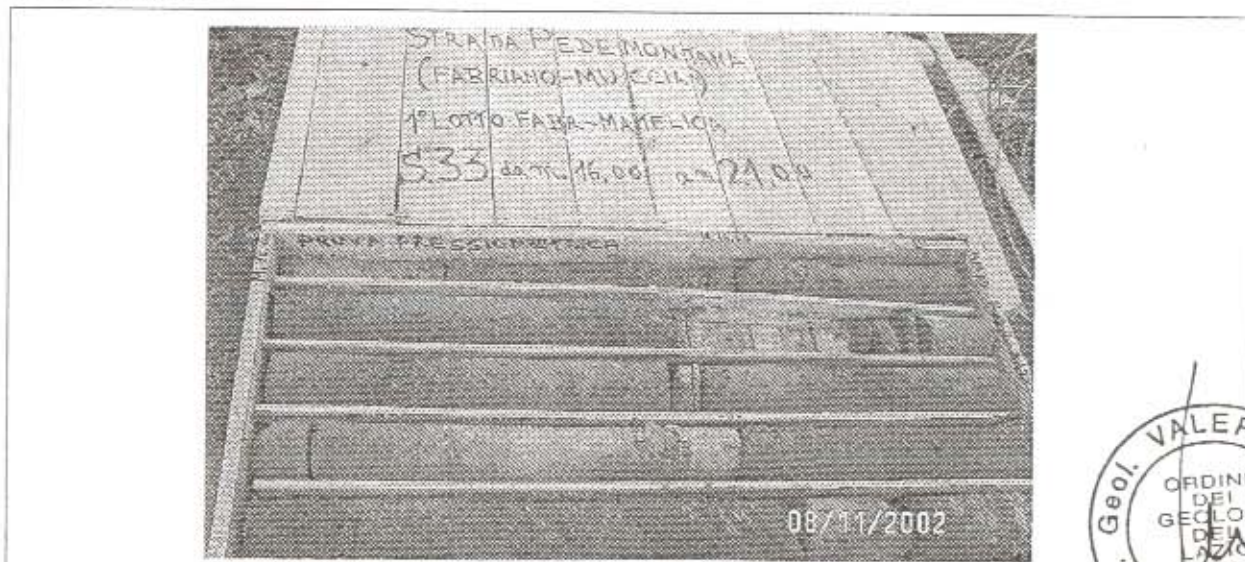 STRADA PEDEMONTANA
(FABRIANO-MUCCIA)
1° LOTTO FABR-MATELICA
S.33 da m. 16,00 a m 21,00
PROVA PRESSIOMETRICA
08/11/2002
Geol. VALER
ORDINE
DEI
GEOLO
DEL
LAZIO